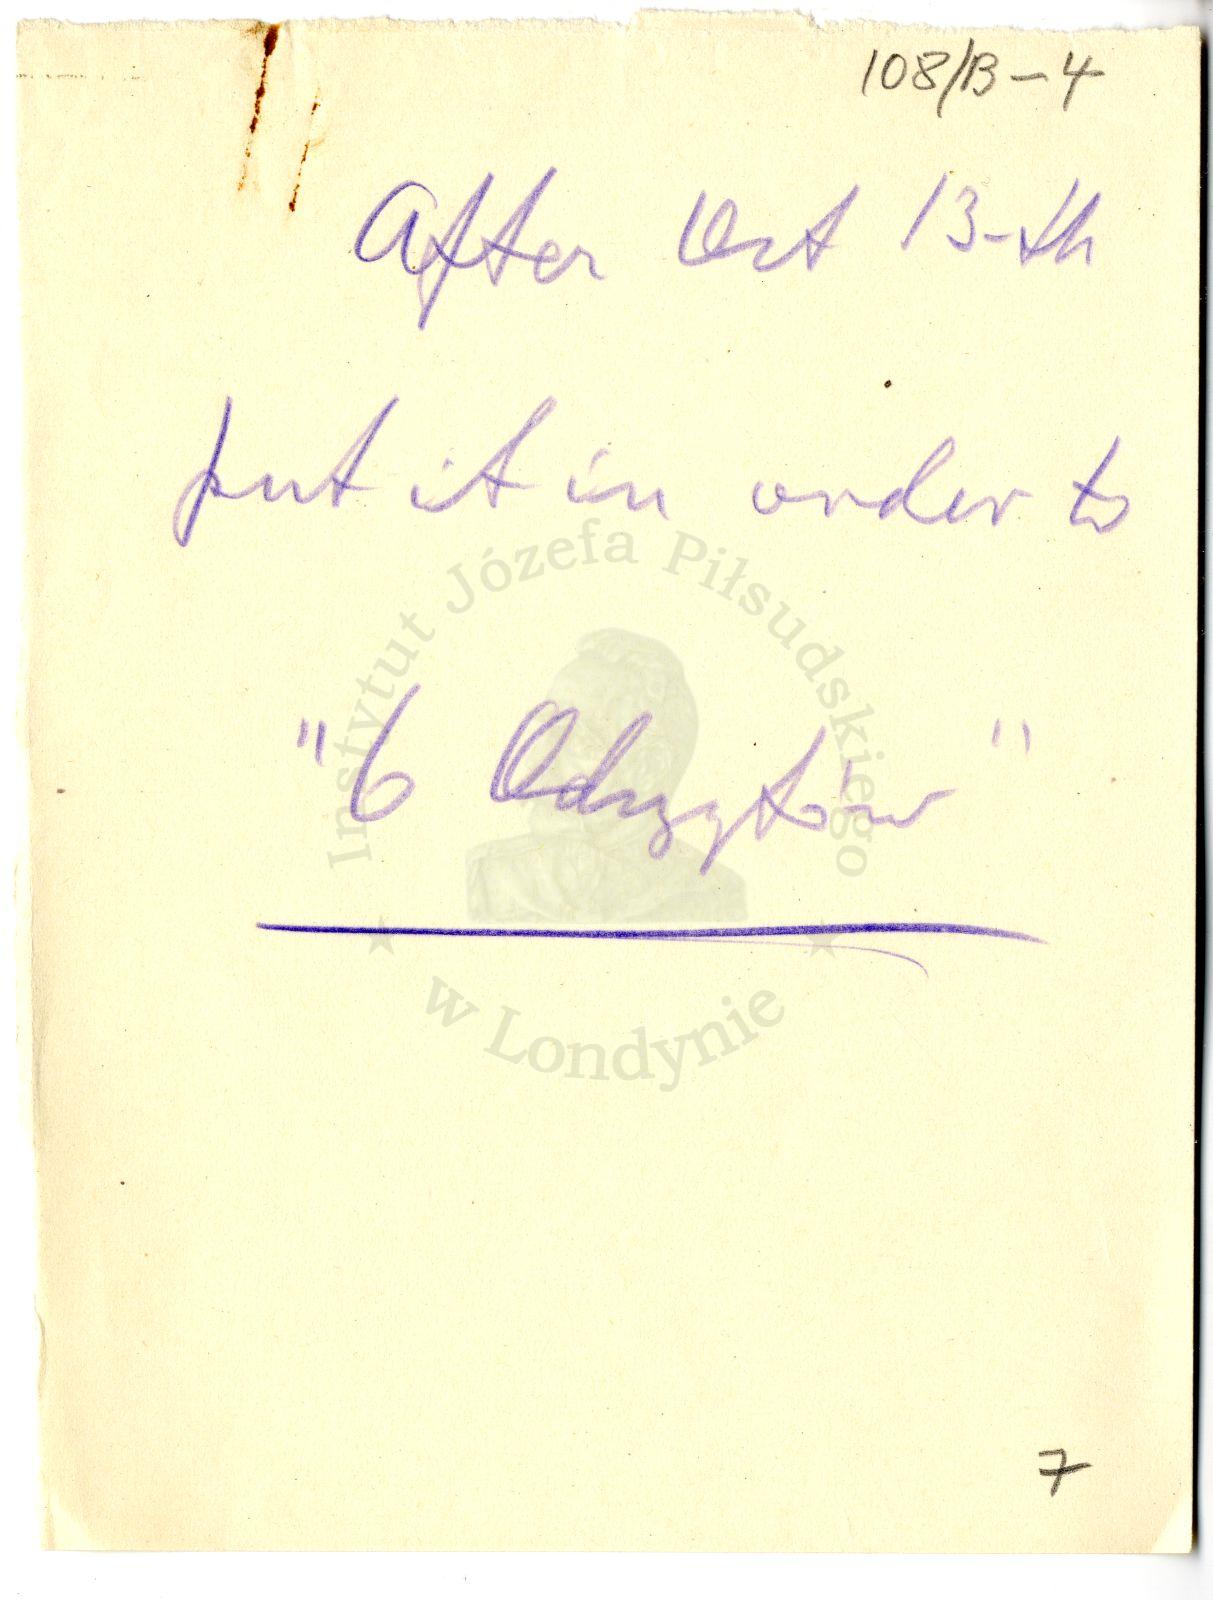 108/B-4
After Oct 13-th
put it in order to
"6 Odczytów"
Instytut Józefa Piłsudskiego
w Londynie
7